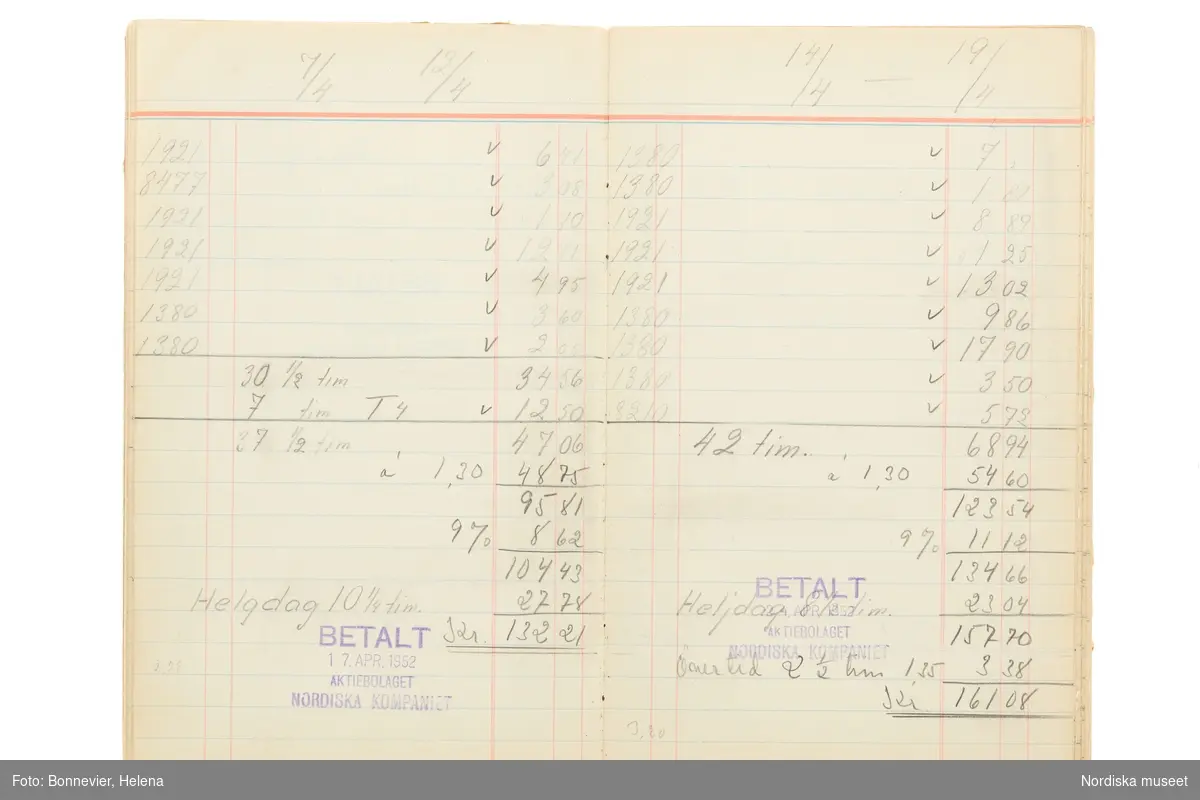 7/4 12/4
1921 ✓ 6 41
8477 ✓ 3 08
1921 ✓ 1 10
1921 ✓
1921 ✓ 4 95
1380 ✓ 3 60
1380 ✓ 2
30 1/2 tim 34 56
7 tim T4 ✓ 12 50
37 1/2 tim 47 06
á 1,30 48 75
95 81
9% 8 62
104 43
Helgdag 10 1/2 tim. 27 78
Kr. 132 21
BETALT
17. APR. 1952
AKTIEBOLAGET
NORDISKA KOMPANIET
14/4 — 19/4
1380 ✓ 7
1380 ✓ 1
1921 ✓ 8 89
1921 ✓ 1 25
1921 ✓ 13 02
1380 ✓ 9 86
1380 ✓ 17 90
1380 ✓ 3 50
8210 ✓ 5 72
42 tim. 68 94
á 1,30 54 60
123 54
9% 11 12
134 66
Heljdag 8 1/2 tim. 23 04
157 70
Övertid 2 1/2 tim 1 35 3 38
Kr. 161 08
BETALT
APR. 1952
AKTIEBOLAGET
NORDISKA KOMPANIET
Foto: Bonnevier, Helena
Nordiska museet